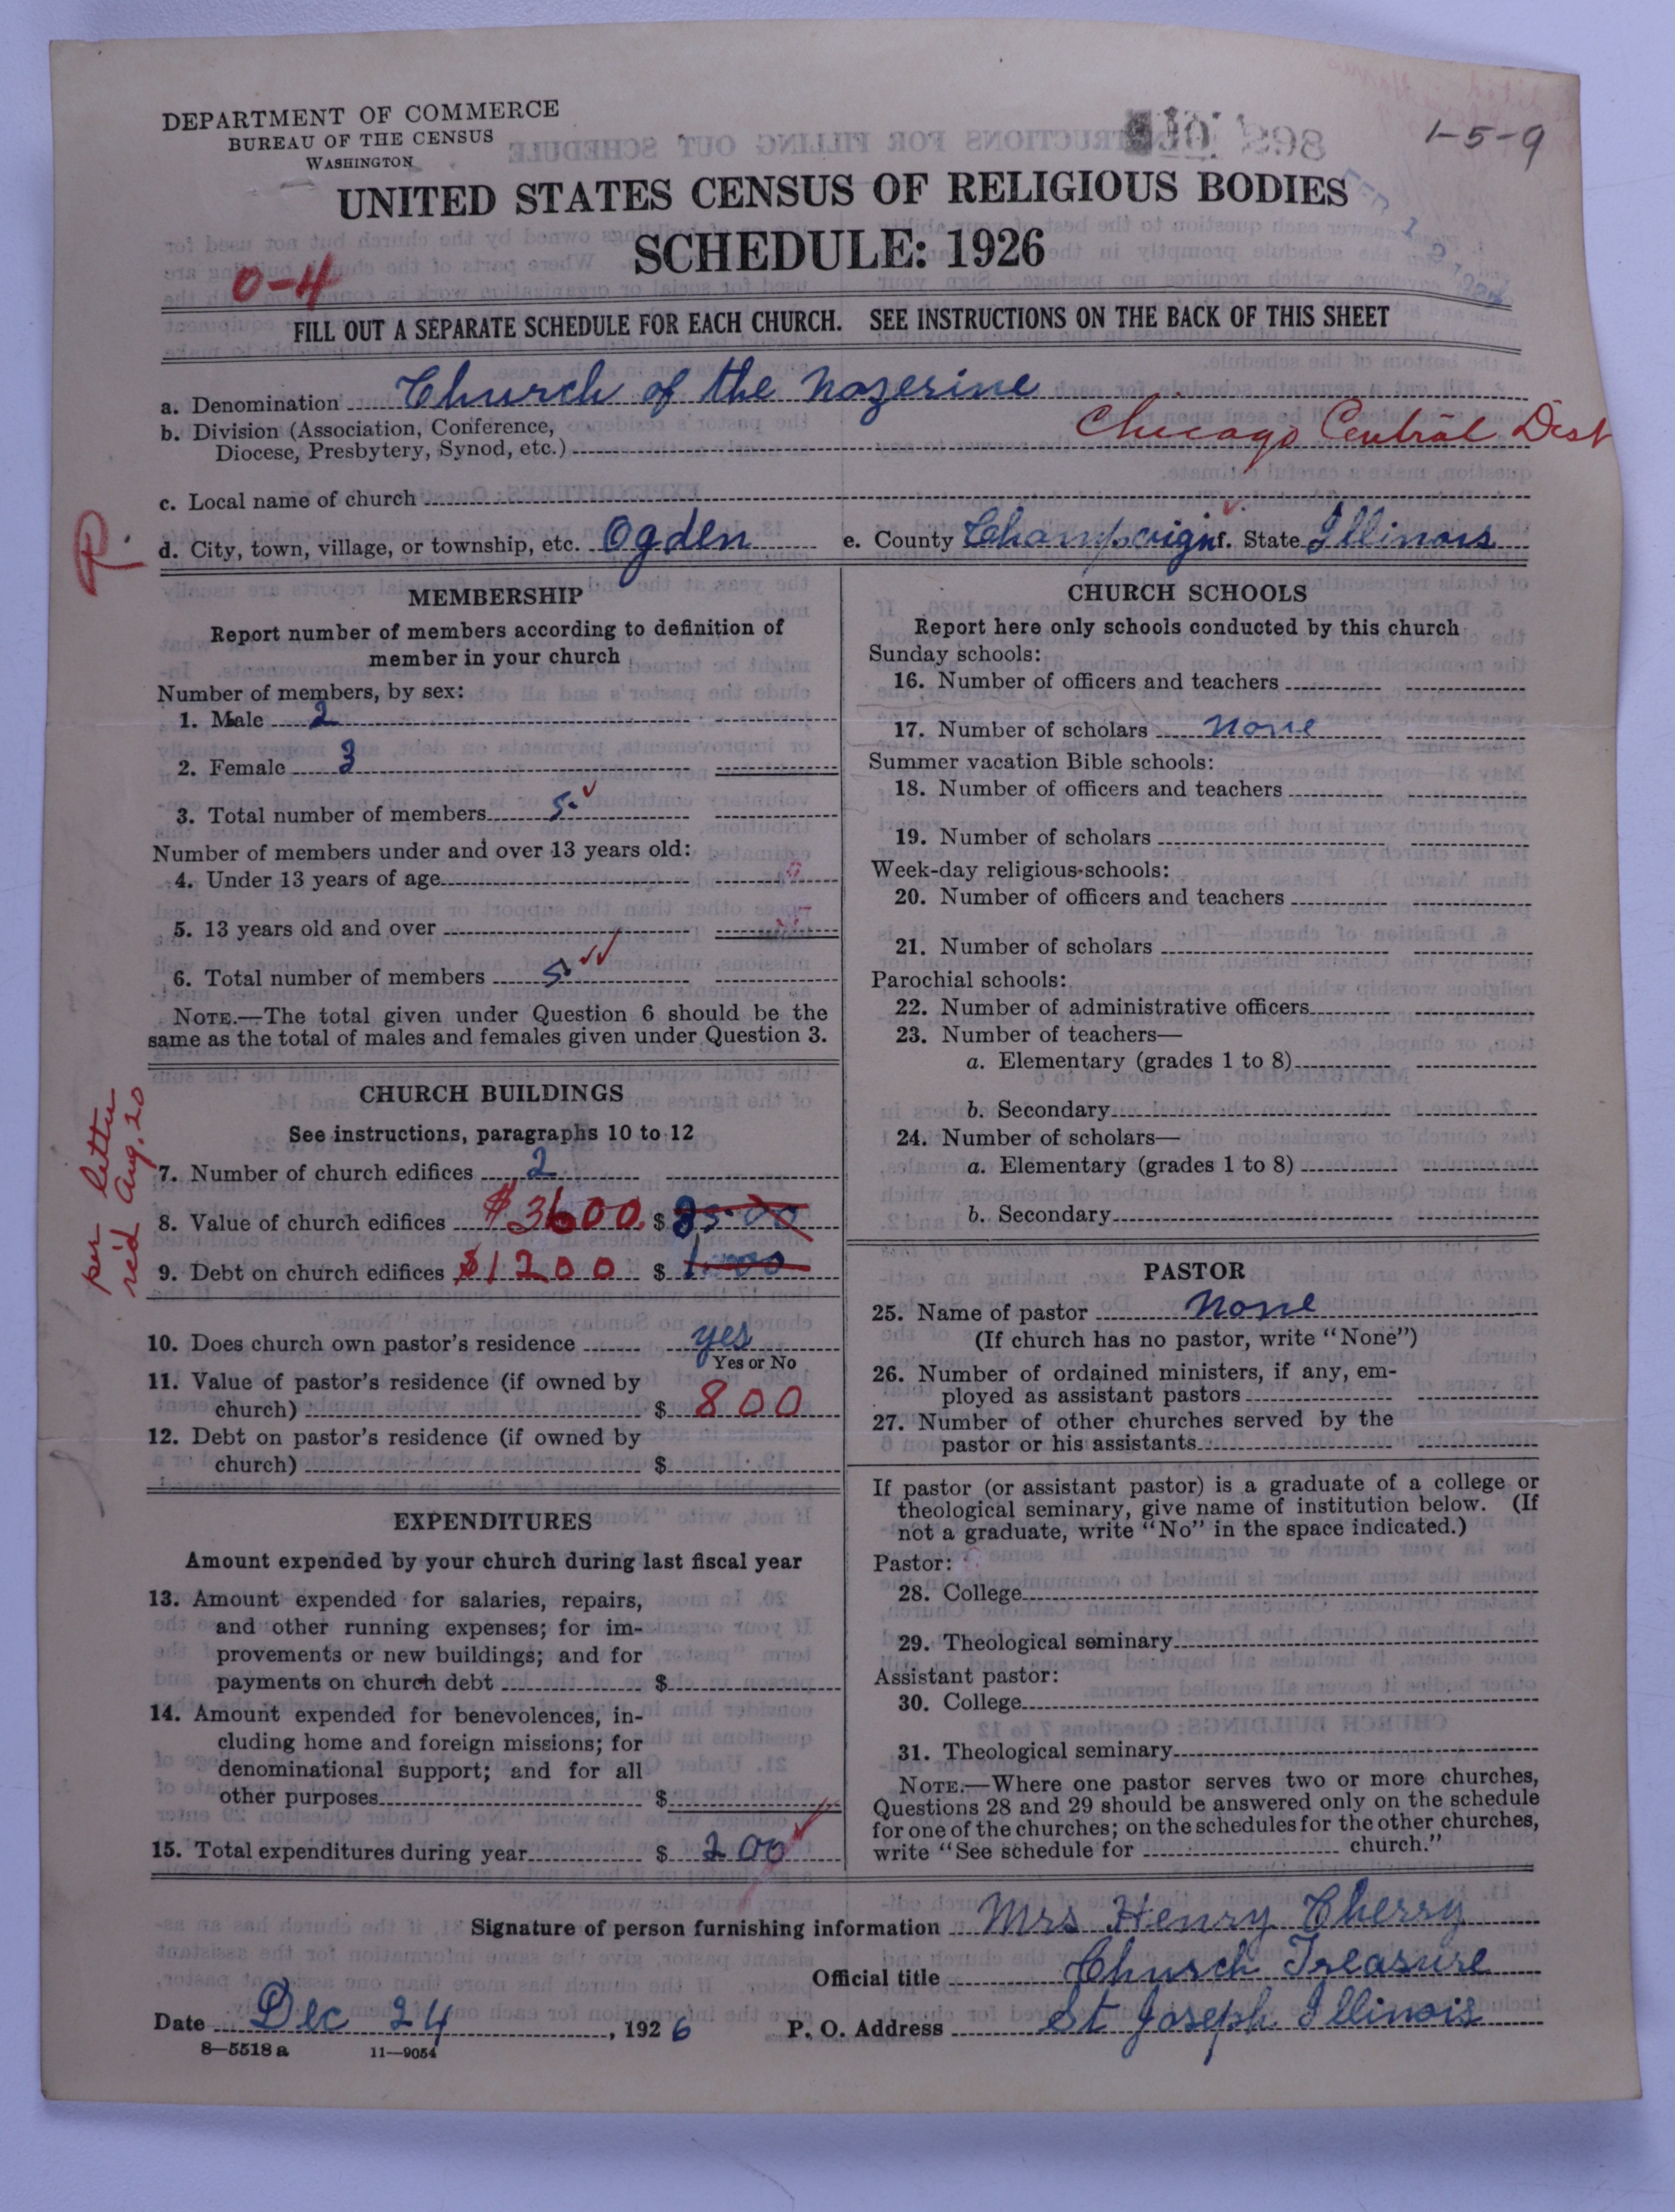 DEPARTMENT OF COMMERCE
BUREAU OF THE CENSUS
WASHINGTON
1-5-9
UNITED STATES CENSUS OF RELIGIOUS BODIES
SCHEDULE: 1926
0-4
FILL OUT A SEPARATE SCHEDULE FOR EACH CHURCH. SEE INSTRUCTIONS ON THE BACK OF THIS SHEET
a. Denomination Church of the Nazerine
b. Division (Association, Conference,
Diocese, Presbytery, Synod, etc.) Chicago Central Dist
c. Local name of church
d. City, town, village, or township, etc. Ogden e. County Champaign f. State Illinois
MEMBERSHIP
Report number of members according to definition of
member in your church
Number of members, by sex:
1. Male 2
2. Female 3
3. Total number of members 5
Number of members under and over 13 years old:
4. Under 13 years of age 0
5. 13 years old and over 5
6. Total number of members 5
NOTE.—The total given under Question 6 should be the
same as the total of males and females given under Question 3.
CHURCH BUILDINGS
See instructions, paragraphs 10 to 12
per letter
rec'd Aug. 20
7. Number of church edifices 2
8. Value of church edifices $3600 $
9. Debt on church edifices $1200 $
10. Does church own pastor's residence yes
Yes or No
11. Value of pastor's residence (if owned by
church) $ 800
12. Debt on pastor's residence (if owned by
church) $
EXPENDITURES
Amount expended by your church during last fiscal year
13. Amount expended for salaries, repairs,
and other running expenses; for im-
provements or new buildings; and for
payments on church debt $
14. Amount expended for benevolences, in-
cluding home and foreign missions; for
denominational support; and for all
other purposes $
15. Total expenditures during year $ 200
CHURCH SCHOOLS
Report here only schools conducted by this church
Sunday schools:
16. Number of officers and teachers
17. Number of scholars none
Summer vacation Bible schools:
18. Number of officers and teachers
19. Number of scholars
Week-day religious schools:
20. Number of officers and teachers
21. Number of scholars
Parochial schools:
22. Number of administrative officers
23. Number of teachers—
a. Elementary (grades 1 to 8)
b. Secondary
24. Number of scholars—
a. Elementary (grades 1 to 8)
b. Secondary
PASTOR
25. Name of pastor none
(If church has no pastor, write "None")
26. Number of ordained ministers, if any, em-
ployed as assistant pastors
27. Number of other churches served by the
pastor or his assistants
If pastor (or assistant pastor) is a graduate of a college or
theological seminary, give name of institution below. (If
not a graduate, write "No" in the space indicated.)
Pastor:
28. College
29. Theological seminary
Assistant pastor:
30. College
31. Theological seminary
NOTE.—Where one pastor serves two or more churches,
Questions 28 and 29 should be answered only on the schedule
for one of the churches; on the schedules for the other churches,
write "See schedule for church."
Signature of person furnishing information Mrs Henry Cherry
Official title Church Treasure
Date Dec 24, 1926 P. O. Address St Joseph Illinois
8—5518 a 11—9054